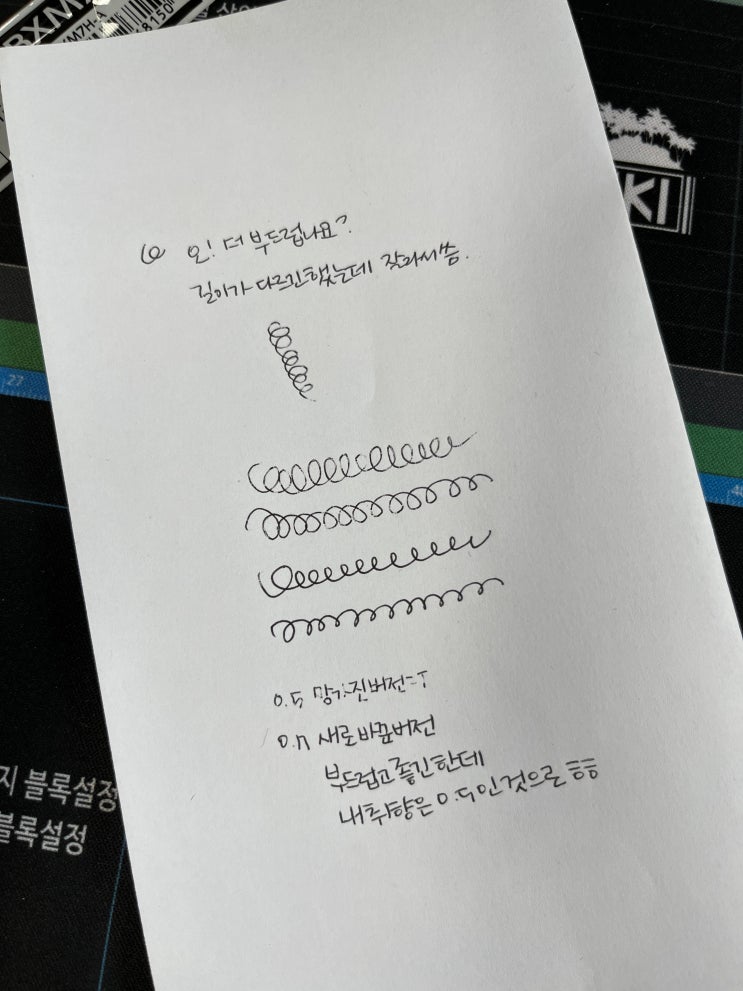 BXM7
XM7H-A
8150
오! 더 부드럽나요?
길이가 다르긴했는데 잘라서씀.
KI
27
0.5 망가진버전=T
0.7 새로바꾼버전
부드럽고 좋긴한데
내취향은 0.5인것으로 ㅎㅎ
지 블록설정
블록설정